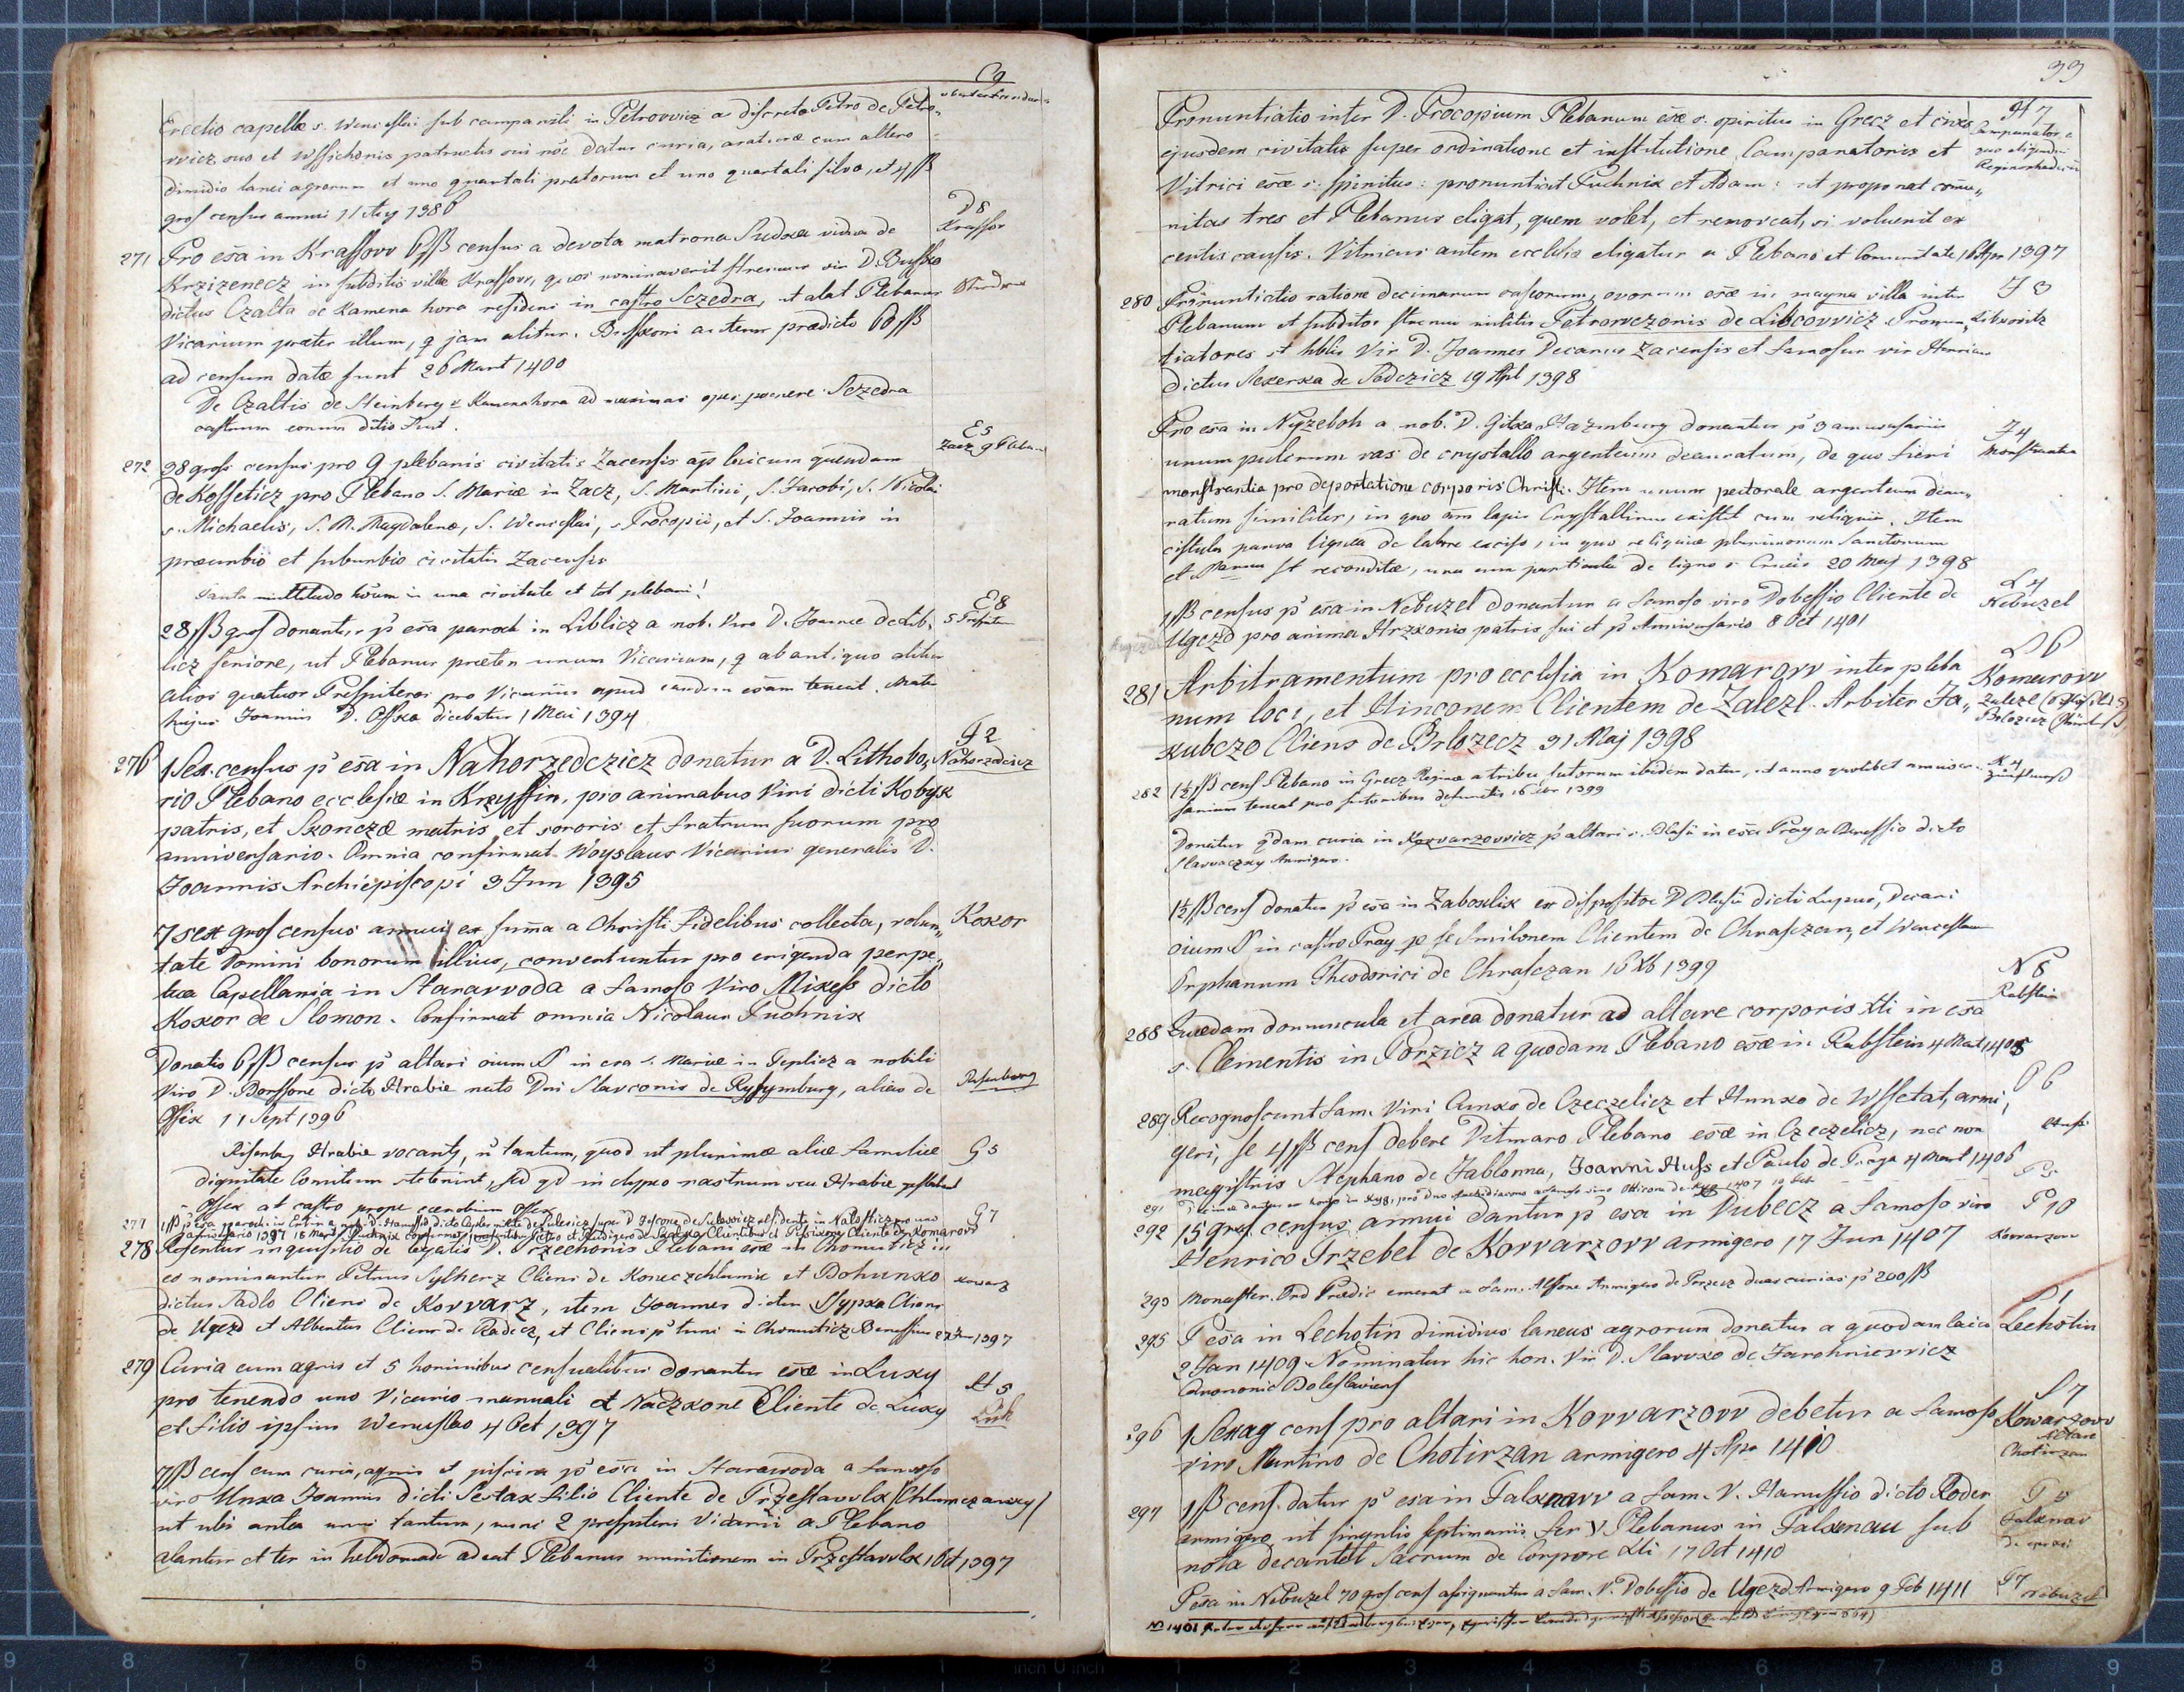 C9
Erectio capellæ s. Wenceslai sub campanili in Petrovvicz a discreto Petro de Petro„
vvicz suo et Wssichonis patruelis sui nōe datur curia, araturæ cum altero
dimidio lanei agrorum et uno quartali pratorum et uno quartali silvæ, et 4 ſß
gros census annui 11 Aug 1386
D8
Krassov
271 Pro eīa in Krassovv 6 ſß census a devota matrona Sudka vidua de
Krzizenecz in subditis villæ Krassovv, quos nominaverit strenuus vir D. Bussko
dictus Czalta de Kamena hora residens in castro Sczedra, ut alat Plebanus
Vicarium præter illum, q jam alitur. Busskoni autem prædicto 60 ſß
ad censum datæ sunt 26 Mart 1400
De Czaltis de Steinberg v Kamenahora ad maximas opes Sczedra
castrum eorum ditio fuit.
E5
Zacz 9 Pleban
272 98 gros census pro 9 plebanis civitatis Zacensis apud laicum quendam
de Kosseticz pro Plebano S. Mariæ in Zacz, S. Martini, S. Jacobi, S. Nicolai
s. Michaelis, S. M. Magdalenæ, S. Wenceslai, s Procopii, et S. Joannis in
præurbio et suburbio civitatis Zacensis
Tanta multitudo in una civitate et tot plebani!
E8
28 ſß gros donantur p eīa paroch in Liblicz a nob. Viro D. Joanne de Lib„
licz seniore, ut Plebanus præter unum Vicarium, q ab antiquo alitur
alios quatuor Presbiteros pro Vicariis apud eandem eīam teneat. Mater
hujus Joannis D. Ofka dicebatur 1 Mai 1394
F2
Nahorzedczicz
276 1 Sex. census p eīa in Nahorzedczicz donatur a D. Lithobo„
rio Plebano ecclesiæ in Krzyssin, pro animabus Viri dicti Kobyk
patris, et Skonczæ matris et sororis et fratrum suorum pro
anniversario. Omnia confirmat Woyslaus Vicarius generalis D.
Joannis Archiepiscopi 3 Jun 1395
7 sex gros census annui ex summa a Christi fidelibus collecta, volun„ Kokor
tate Domini bonorum illius, convertuntur pro erigenda perpe„
tua Capellania in Staravvoda a famoso Viro Mikess dicto
Kokor de Slomon. Confirmat omnia Nicolaus Puchnik
Donatio 6 ſß census p altari oium S in eīa s. Mariæ in Teplicz a nobili
Viro D. Borssone dicto Hrabie nato Dni Slavconis de Rysymburg, alias de
Ossek 11 Sept 1396
Risenberg
Risenberg Hrabie vocantur, n tantum, quod ut plurimæ aliæ familiæ G5
dignitate Comitum steterint, sed qd in clypeo rastrum seu Hrabie gestabant
Ossek at castro prope cænobium Ossek
277
G7
278 Refertur inquisitio de legatis D. Przechonis Plebani eīæ in Chomuticz in
eo nominantur Petrus Sylherz Cliens de Koneczchlumie et Bohunko
dictus Sadlo Cliens de Kovvarz, item Joannes dictus Sypka Cliens
de Ugezd et Albertus Cliens de Radecz, et Cliens p tunc in Chomuticz Benessius 27 Jun 1397
279 Curia cum agris et 5 hominibus censualibus donantur eīæ in Luky H5
pro tenendo uno Vicario manuali a Naczkone Cliente de Luky Luk
et filio ipsius Wenceslao 4 Oct 1397
7 ſß cens cum curia, agris et piscina p eīa in Staravvoda a famoso
viro Unka Joannis dicti Sestak filio Cliente de Przestavvlk (Chlumczansky)
ut ubi antea unus tantum, nunc 2 presbyteri Vicarii a Plebano
alantur et ter in hebdomade adeat Plebanus munitionem in Przestavvlk 1 Oct 1397
33
H7
Pronuntiatio inter D. Procopium Plebanum eīæ s. spiritus in Grecz et cives
ejusdem civitatis super ordinatione et institutione Campanatoris et
Vitrici eīæ s. spiritus: pronuntiat Puchnik et Adam: ut proponat commu„
nitas tres et Plebanus eligat, quem volet, et removeat, si voluerit ex
certis causis. Vitricus autem ecclesiæ eligatur a Plebano et Comunitate 16 Apr 1397
280 Pronuntiatio ratione decimarum caseorum, ovorum eīæ in magna villa inter J3
Plebanum et subditos strenui militis Petrovvczonis de Libcovvicz. Pronun„ Libkovitz
tiatores st hblis Vir D. Joannes Decanus Zacensis et famosus vir Henricus
dictus Sekerka de Sedczicz 19 Apl 1398
Pro eīa in Nyzeboh a nob. D. Gitka Hazmburg donantur p 3 anniversariis J4
unum pulcrum vas de crystallo argenteum deauratum, de quo fieri Monstrantia
monstrantia pro deportatione corporis Christi. Item unum pectorale argenteum deau„
ratum similiter, in quo etiam lapis Crystallinus existit cum reliquiis. Item
cistula parva lignea de labore exciso, in quo reliquiæ plurimorum Sanctorum
et Sanctarum st reconditæ, una cum particula de ligno s Crucis 20 Maj 1398
1 ſß census p eīa in Nebuzel donantur a famoso viro Dobessio Cliente de L4
Ugezd pro anima Hrzkonis patris sui et p Anniversario 8 Oct 1401 Nebuzel
L6
281 Arbitramentum pro ecclesia in Komarovv inter pleba Komarovv
num loci, et Hinconem Clientem de Zalezl. Arbiter Ja„
kubczo Cliens de Brlozecz 31 Maj 1398
282 1½ ſß cens Plebano in Grecz Reginæ a tribu sutorum ibidem datur, ut anno quolibet anniver„ K4
sarium teneat pro sutoribus defunctis 1399
Donatur qdam curia in Kovvarzovvicz p altari s. Blasii in eīa Prag a Benessio dicto
Slavvaczky Armigero.
1½ ſß cens donatur p eīa in Zaboklik ex dispositoe D Blasii dicti Lupus, Decani
oium S in castro Prag p se Smilonem Clientem de Chrasczan, et Wenceslaum
Orphanum Theodorici de Chrasczan 16 Xb 1399
N8
Rabstein
288 Quædam domuncula et area donatur ad altare corporis Xti in eīa
s. Clementis in Porzicz a quodam Plebano eīæ in Rabstein 4 Mart 1405
O6
289 Recognoscunt fam. Viri Cunko de Czeczelicz et Hunko de Wssetat, armi„
geri, se 4 ſß cens debere Ditmaro Plebano eīæ in Czeczelicz, nec non
magistris Stephano de Jablonna, Joanni Huss et Paulo de Praga 4 Mart 1406
291
292 15 gros census annui dantur p eīa in Dubecz a famoso viro P10
Henrico Trzebel de Kovvarzovv armigero 17 Jun 1407 Kovvarzovv
293 Monaster. Ord Prædic emerat a fam. Alssone Armigero de Porzicz duas curias p 200 ſß
S1
295 P eīa in Lechotin dimidius laneus agrorum donatur a quodam laico Lechotin
2 Jan 1409. Nominatur hic hon. Vir D. Slavvko de Jarohnievvicz
Canononic Boleslaviens
S7
296 1 Sexag cens pro altari in Kovvarzovv debetur a famoso Kowarzovv
viro Martino de Chotirzan armigero 4 Apr 1410 Altare
Chotirzan
297 1 ſß cens. datur p eīa in Falknavv a fam. V. Hanussio dicto Roder
armigero ut singulis septimanis fer V Plebanus in Falkenau sub Falknav
nota decantet Sacrum de Corpore Xti 17 Oct 1410
P eīa in Nebuzel 70 gros cens assignantur a fam. V. Dobessio de Ugezd Armigero 9 Feb 1411 Nebuzel